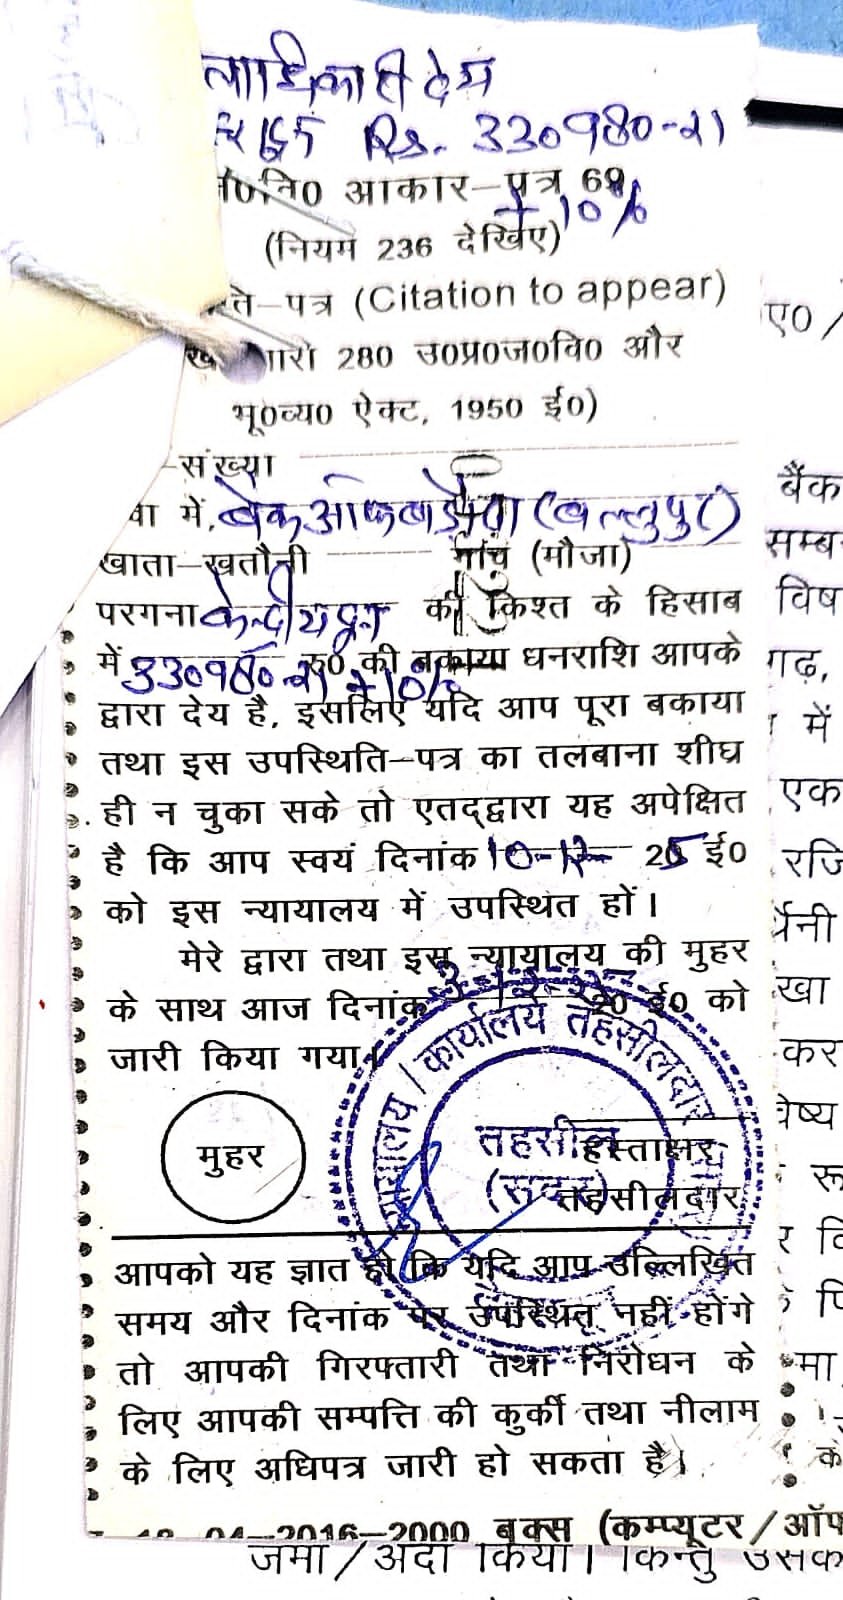 Rs. 330980-21
आकार–पत्र 69
+ 10%
(नियम 236 देखिए)
ते–पत्र (Citation to appear)
280 उ०प्र०ज०वि० और
भू०व्य० ऐक्ट, 1950 ई०)
–संख्या
वा में, बैंक ऑफ बड़ौदा (बल्लुपुर)
खाता–खतौनी गांव (मौजा)
परगना की किश्त के हिसाब
में 330980-21 + 10% रु० की बकाया धनराशि आपके
द्वारा देय है, इसलिए यदि आप पूरा बकाया
तथा इस उपस्थिति–पत्र का तलबाना शीघ्र
ही न चुका सके तो एतद्द्वारा यह अपेक्षित
है कि आप स्वयं दिनांक 10-12- 25 ई०
को इस न्यायालय में उपस्थित हों।
मेरे द्वारा तथा इस न्यायालय की मुहर
के साथ आज दिनांक 20 ई० को
जारी किया गया।
कार्यालय तहसीलदार
तहसील
(सदर)
मुहर
हस्ताक्षर
तहसीलदार
आपको यह ज्ञात हो कि यदि आप उल्लिखित
समय और दिनांक पर उपस्थित नहीं होंगे
तो आपकी गिरफ्तारी तथा निरोधन के
लिए आपकी सम्पत्ति की कुर्की तथा नीलाम
के लिए अधिपत्र जारी हो सकता है।
04–2016–2000 बुक्स (कम्प्यूटर/ऑफ
जमा/अदा किया। किन्तु उसक
ए० /
बैंक
सम्ब
विष
गढ़,
में
एक
रजि
र्मैनी
खा
कर
त्रेष्य
रू
र वि
पि
मा